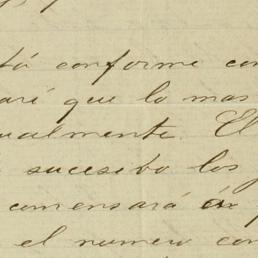 tá conforme con
ará que lo mas
ualmente. El
sucesibo los
comensará
el numero con